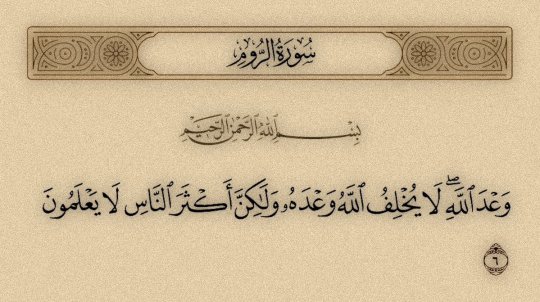 سُورَةُ الرُّومِ
بِسْمِ ٱللَّهِ ٱلرَّحْمَٰنِ ٱلرَّحِيمِ
وَعْدَ ٱللَّهِۖ لَا يُخْلِفُ ٱللَّهُ وَعْدَهُۥ وَلَٰكِنَّ أَكْثَرَ ٱلنَّاسِ لَا يَعْلَمُونَ
٦